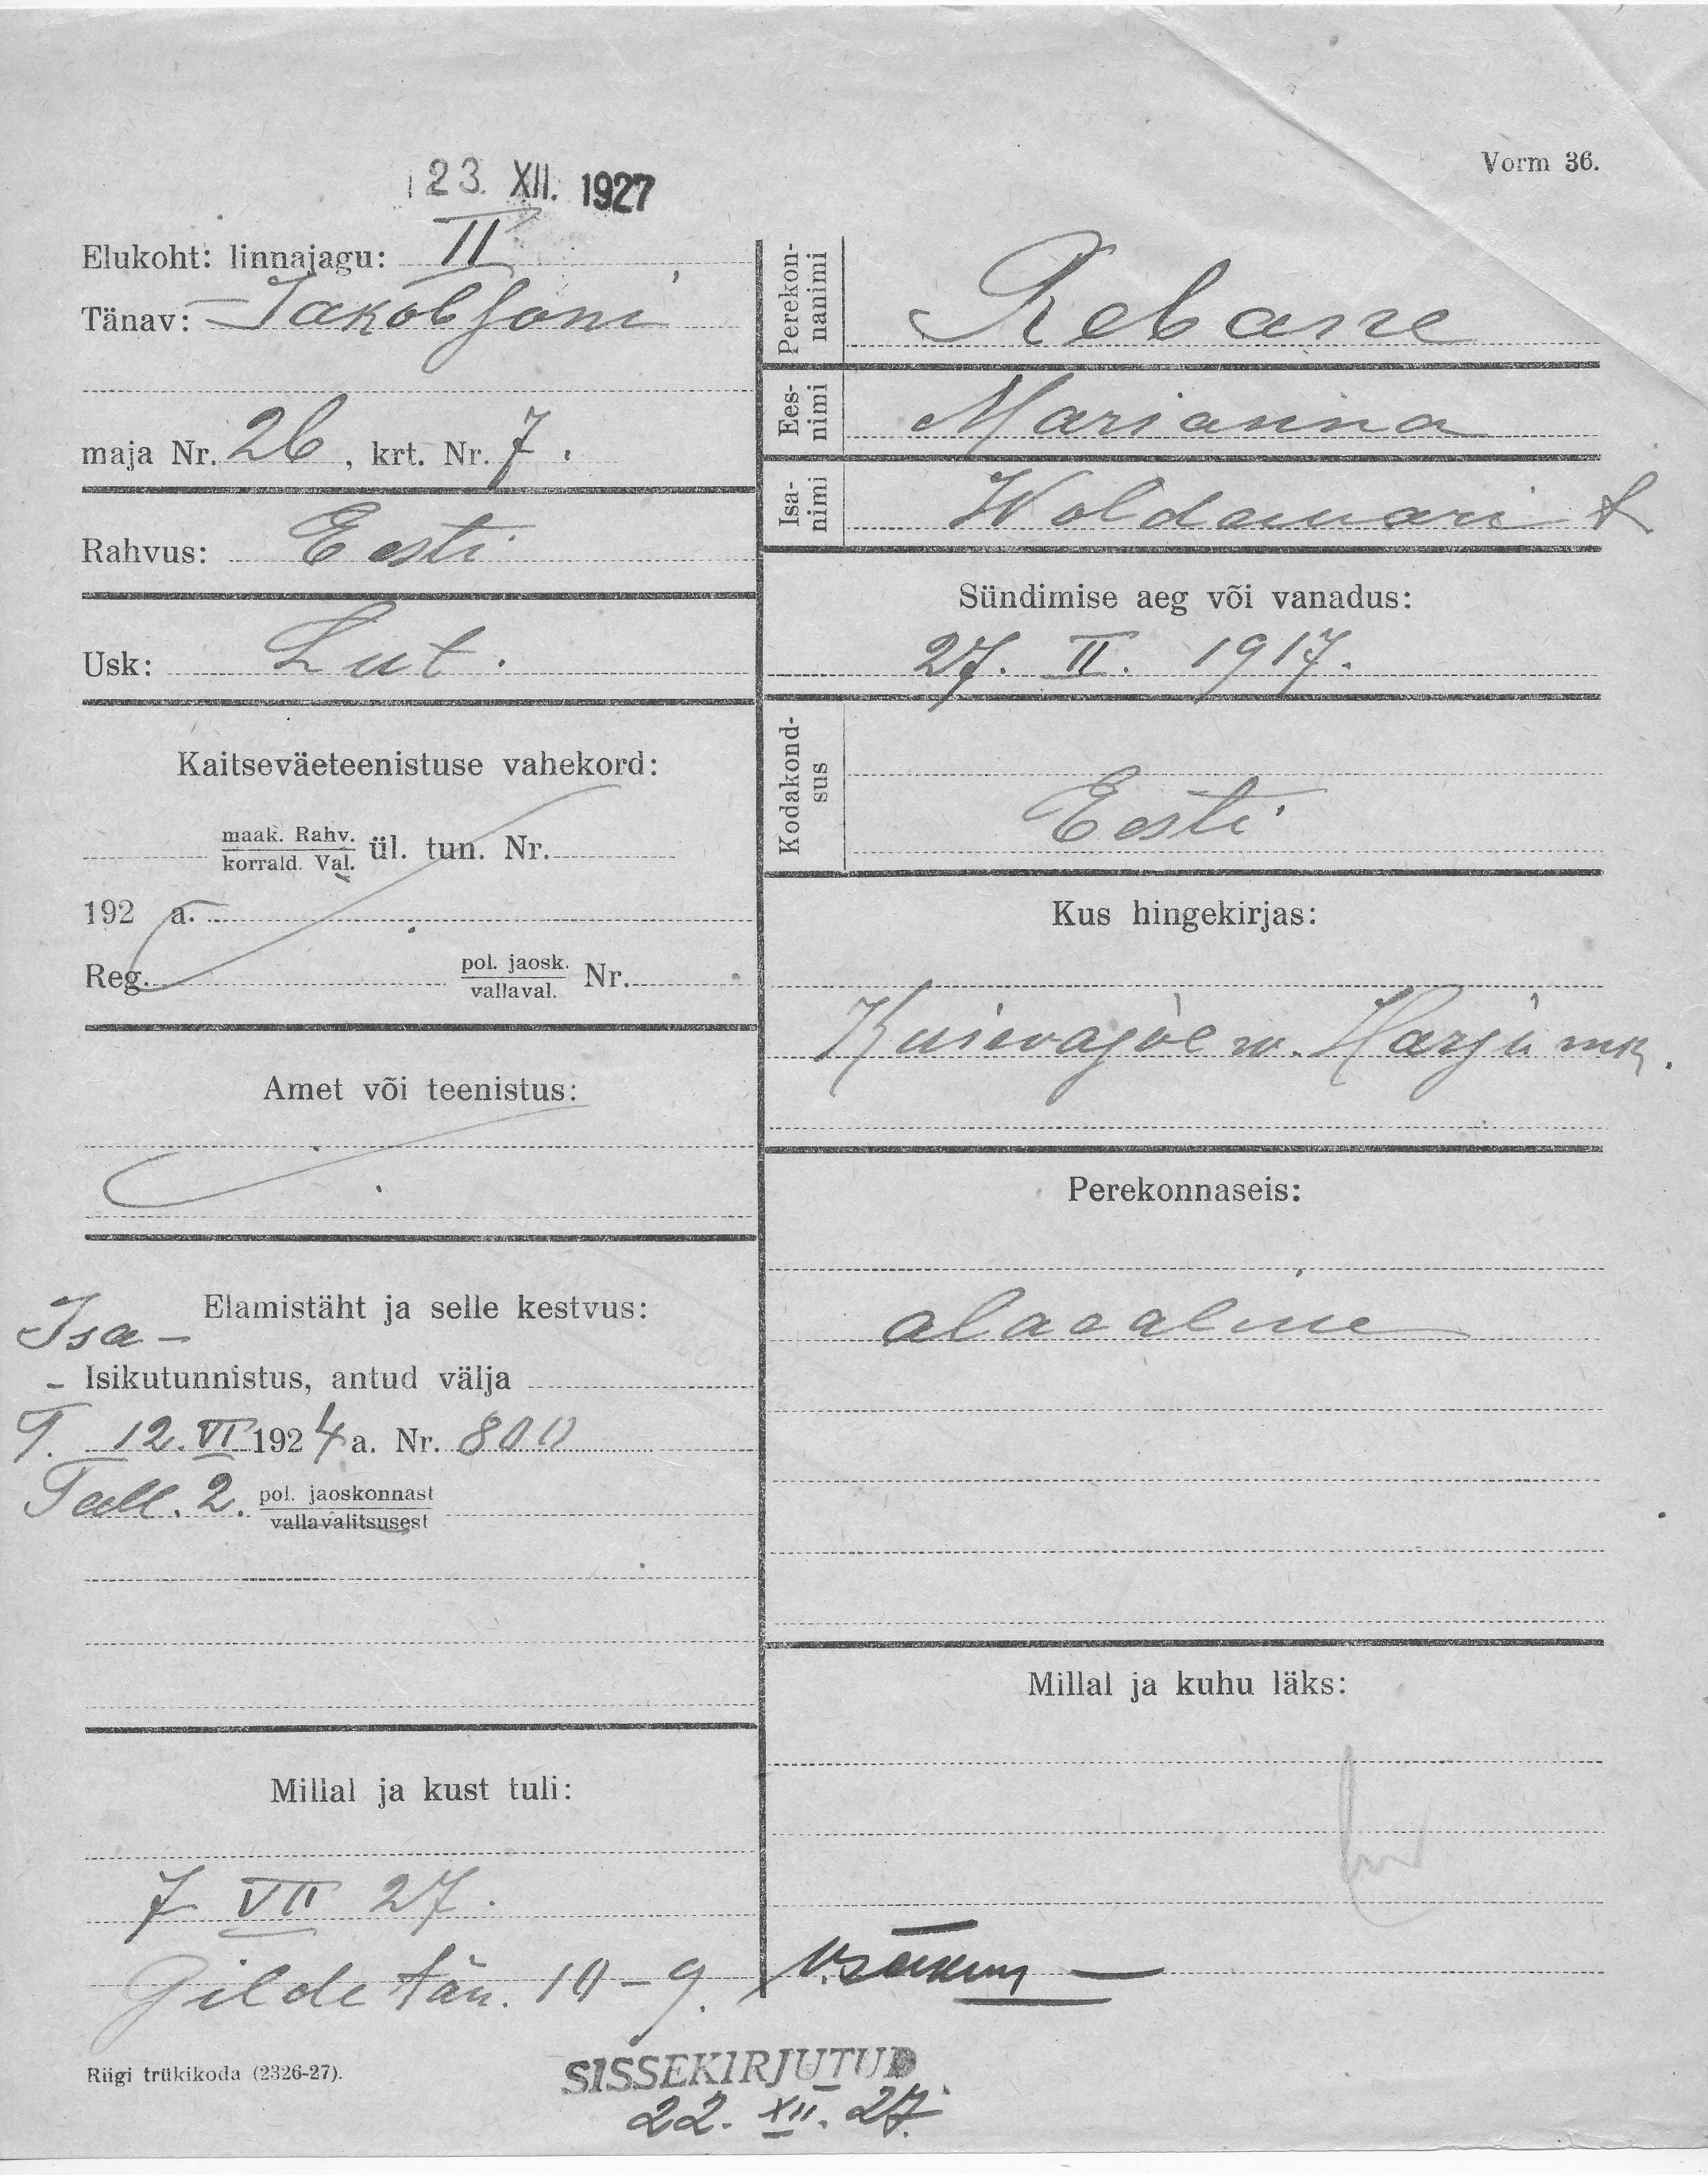 23. XII. 1927
Vorm 36.
Elukoht: linnajagu: II
Tänav: Jakobsoni
maja Nr. 26, krt. Nr. 7.
Rahvus: Eesti
Usk: Lut.
Kaitseväeteenistuse vahekord:
maak. Rahv.
korrald. Val. ül. tun. Nr.
192 a.
Reg. pol. jaosk. Nr.
vallaval.
Amet või teenistus:
Elamistäht ja selle kestvus:
Isa-
- Isikutunnistus, antud välja
T. 12. VI 1924 a. Nr. 800
Tall. 2. pol. jaoskonnast
vallavalitsusest
Millal ja kust tuli:
7 VII 27.
Gilde tän. 10-9.
Riigi trükikoda (2326-27).
Perekon-
nanimi Rebane
Ees-
nimi Marianna
Isa-
nimi Woldemari t.
Sündimise aeg või vanadus:
27. II. 1917.
Kodakond-
sus Eesti
Kus hingekirjas:
Kuievajõe w. Harju mk.
Perekonnaseis:
alaealine
Millal ja kuhu läks:
SISSEKIRJUTUD
22. XII. 27.